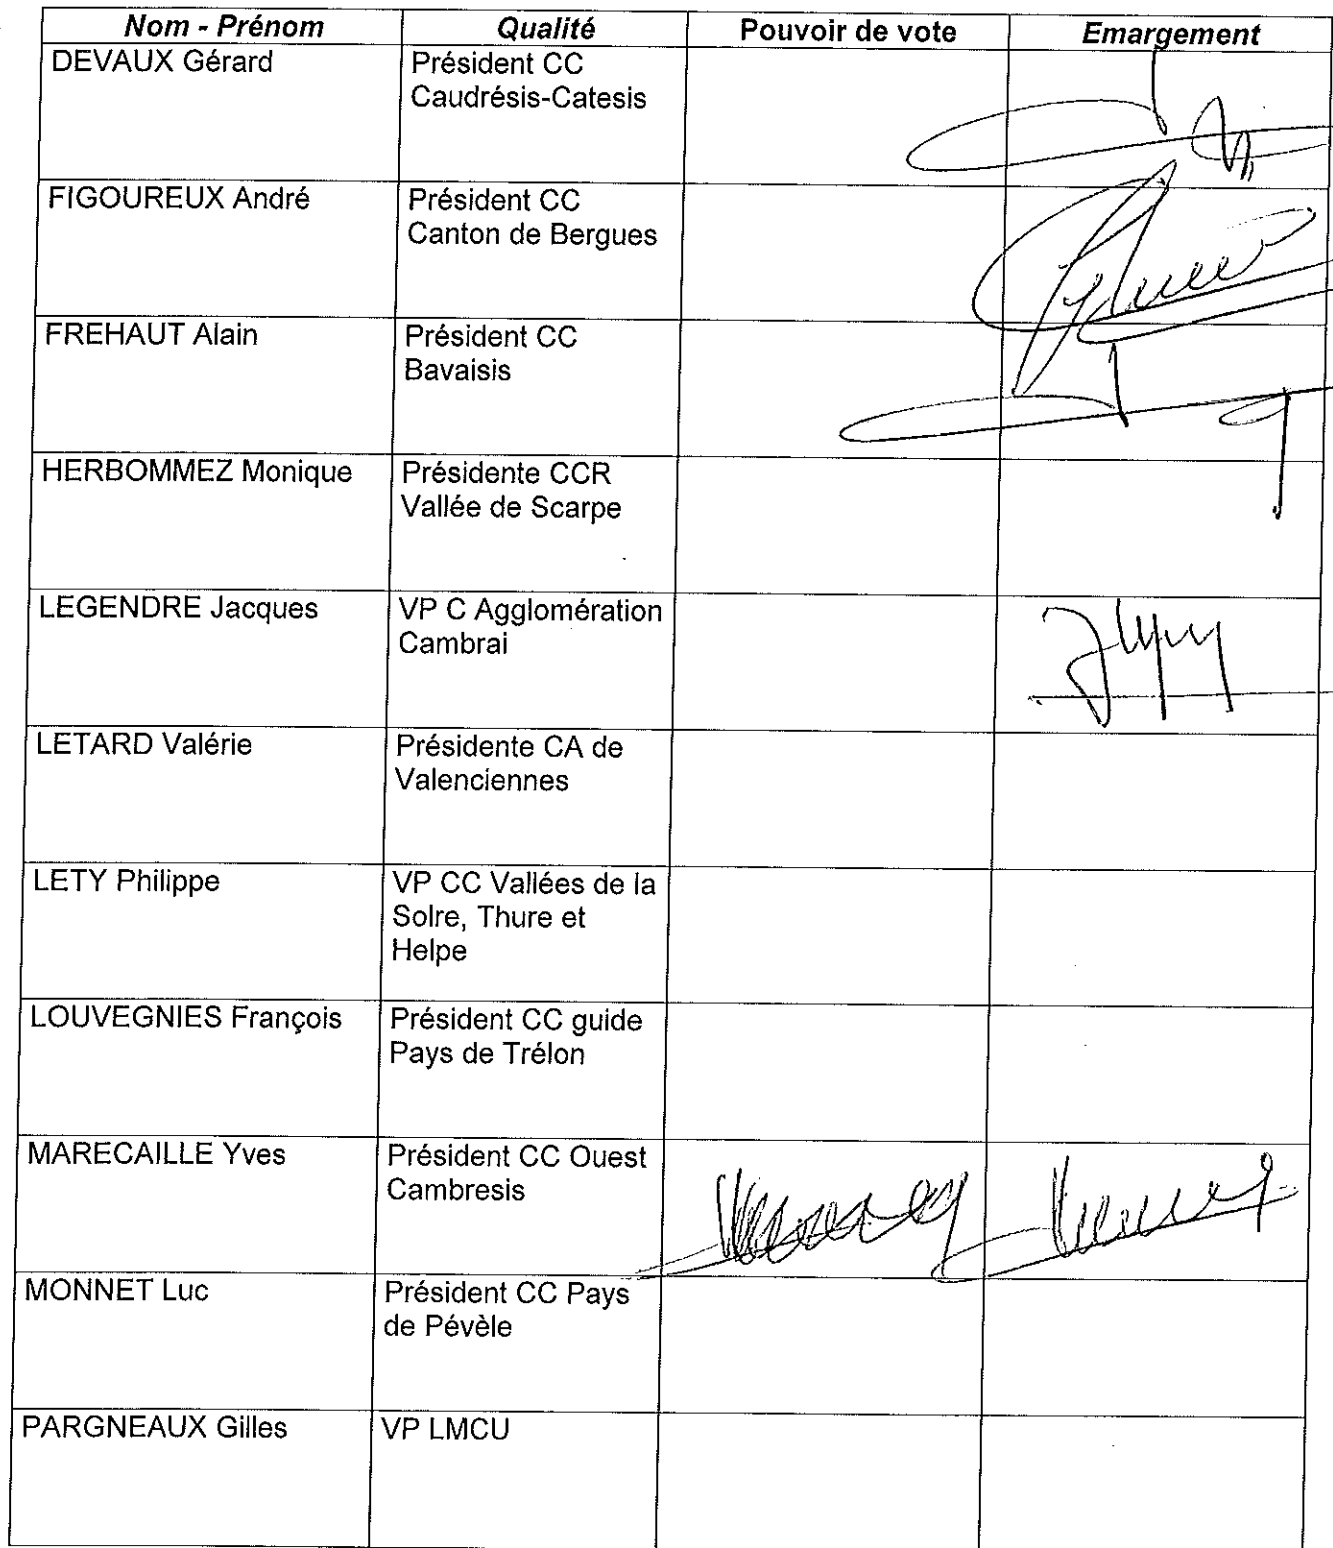 Nom - Prénom Qualité Pouvoir de vote Emargement
DEVAUX Gérard Président CC
Caudrésis-Catesis
FIGOUREUX André Président CC
Canton de Bergues
FREHAUT Alain Président CC
Bavaisis
HERBOMMEZ Monique Présidente CCR
Vallée de Scarpe
LEGENDRE Jacques VP C Agglomération
Cambrai
LETARD Valérie Présidente CA de
Valenciennes
LETY Philippe VP CC Vallées de la
Solre, Thure et
Helpe
LOUVEGNIES François Président CC guide
Pays de Trélon
MARECAILLE Yves Président CC Ouest
Cambresis
MONNET Luc Président CC Pays
de Pévèle
PARGNEAUX Gilles VP LMCU